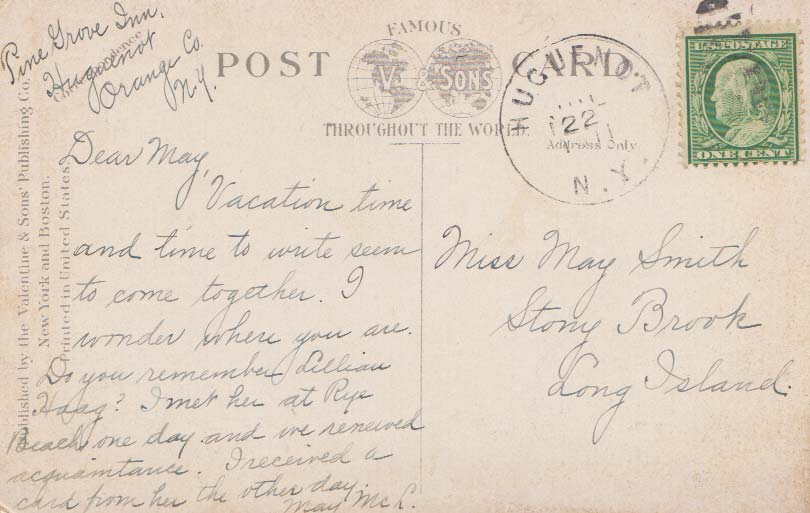 Pine Grove Inn,
Huguenot
Orange Co.
N.Y.
FAMOUS
POST CARD
V. & SONS
THROUGHOUT THE WORLD.
Address Only
HUGUENOT
22
N.Y.
U.S. POSTAGE
ONE CENT
Published by the Valentine & Sons' Publishing Co.
New York and Boston.
Printed in United States
Dear May,
Vacation time
and time to write seem
to come together. I
wonder where you are.
Do you remember Lillian
Haag? I met her at Rye
Beach one day and we renewed
acquaintance. I received a
card from her the other day.
May Mc L.
Miss May Smith
Stony Brook
Long Island.